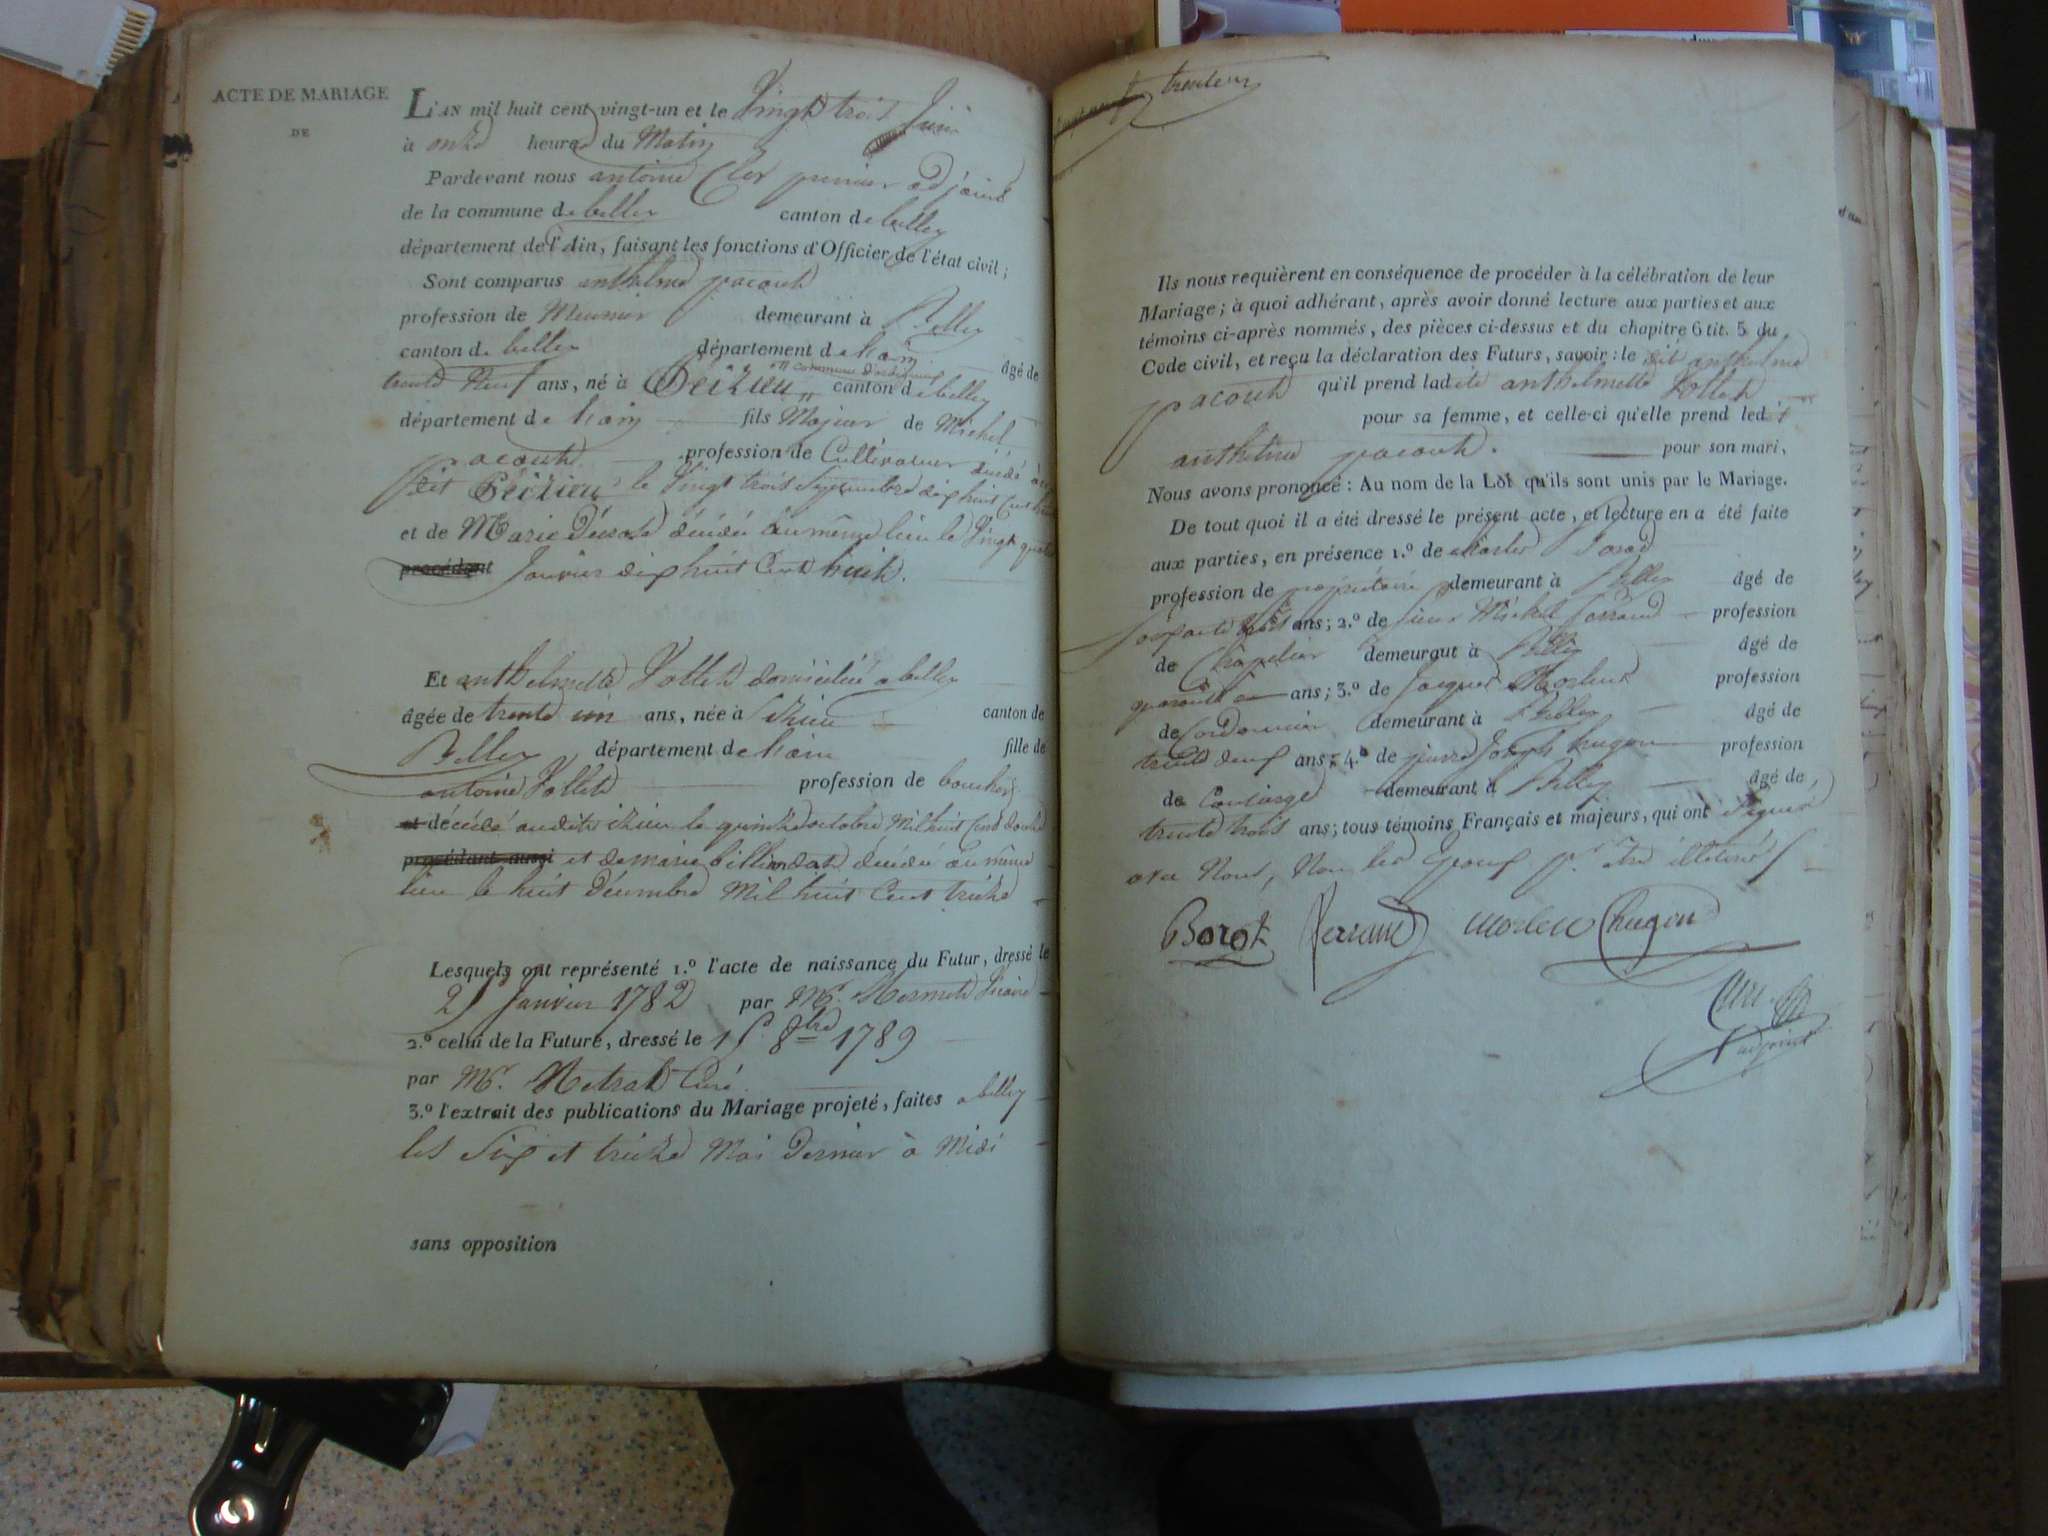 ACTE DE MARIAGE
DE
L'AN mil huit cent vingt-un et le Vingt trois Juin
à onze heures du Matin
Pardevant nous antoine Cler premier adjoint
de la commune de belley canton de belley
département de l'Ain, faisant les fonctions d'Officier de l'état civil;
Sont comparus anthelme pacout
profession de Meunier demeurant à Belley
canton de belley département de l'ain âgé de
trente Neuf ans, né à Peizieu commune d' canton de belley
département de l'ain fils Majeur de Michel
pacout profession de Cultivateur décédé au
dit Peizieu le Vingt trois Septembre dix huit cent
et de Marie décédée au même lieu le Vingt quatre
procédant Janvier dix huit Cent huit.
Et anthelmette Vollet domiciliée a belley
âgée de trente un ans, née à izieu canton de
Belley département de l'ain fille de
antoine Vollet profession de boucher
et décédé audit izieu le quinze octobre Mil huit Cent douze
procédant aussi et de marie billiondat décédée au même
lieu le huit Décembre Mil huit Cent treize
Lesquels ont représenté 1.º l'acte de naissance du Futur, dressé le
Janvier 1782 par Mr. Mermet Vicaire
2.º celui de la Future, dressé le 15 8bre 1789
par Mr. Curé.
3.º l'extrait des publications du Mariage projeté, faites a belley
les Six et treize Mai Dernier à Midi
sans opposition
Ils nous requièrent en conséquence de procéder à la célébration de leur
Mariage; à quoi adhérant, après avoir donné lecture aux parties et aux
témoins ci-après nommés, des pièces ci-dessus et du chapitre 6 tit. 5 du
Code civil, et reçu la déclaration des Futurs, savoir: le dit anthelme
pacout qu'il prend ladite anthelmette Vollet
pour sa femme, et celle-ci qu'elle prend ledit
anthelme pacout. pour son mari,
Nous avons prononcé: Au nom de la Loi qu'ils sont unis par le Mariage.
De tout quoi il a été dressé le présent acte, et lecture en a été faite
aux parties, en présence 1.º de Charles
profession de propriétaire demeurant à Belley âgé de
soixante trois ans; 2.º de sieur Michel ferrand profession
de Chapelier demeurant à Belley âgé de
quarante ans; 3.º de Jacques profession
de Cordonnier demeurant à Belley âgé de
trente Neuf ans; 4.º de pierre Joseph hugon profession
de Concierge demeurant à Belley âgé de
trente trois ans; tous témoins Français et majeurs, qui ont signé
avec Nous, Non les Epoux pr. être illetérés
ferrand hugon
adjoint